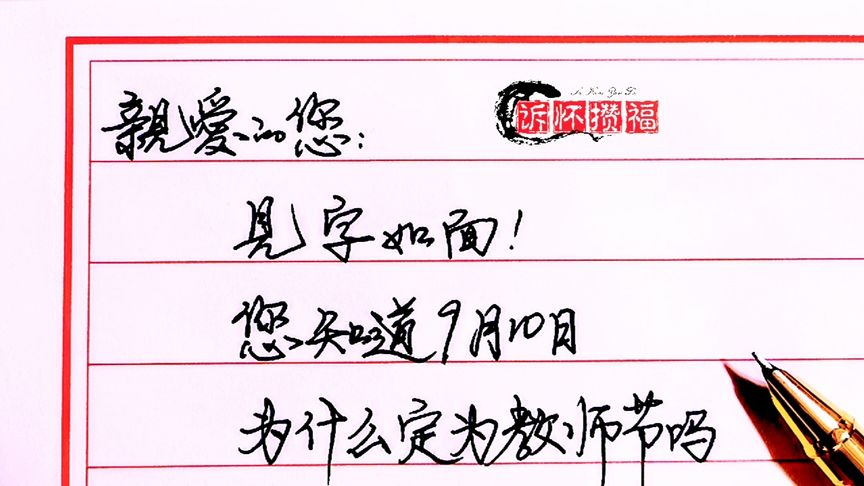 親愛的您：
诉怀攒福
見字如面！
您知道9月10日
为什么定为教师节吗